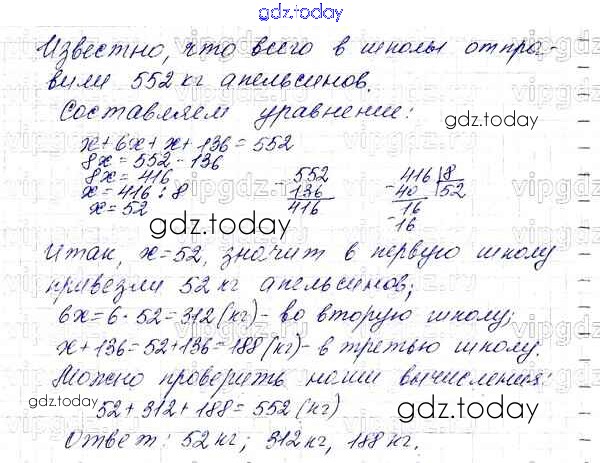 gdz.today
Известно, что всего в школы отпра-
вили 552 кг апельсинов.
Составляем уравнение:
gdz.today
x + 6x + x + 136 = 552
8x = 552 - 136
8x = 416
x = 416 : 8
x = 52
- 552
136
416
416 | 8
- 40 | 52
16
- 16
gdz.today
Итак, x = 52, значит в первую школу
привезли 52 кг апельсинов;
6x = 6 · 52 = 312 (кг) - во вторую школу;
x + 136 = 52 + 136 = 188 (кг) - в третью школу.
Можно проверить наши вычисления:
52 + 312 + 188 = 552 (кг)
gdz.today
gdz.today
Ответ: 52 кг; 312 кг, 188 кг.